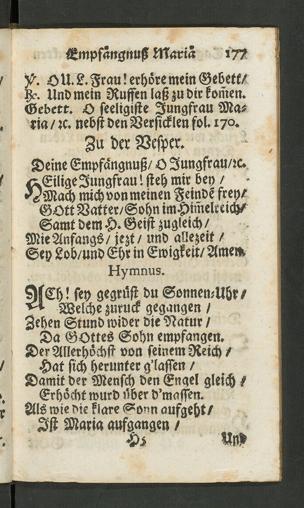 Empfängnuß Mariä 177
℣. O U. L. Frau! erhöre mein Gebett/
℟. Und mein Ruffen laß zu dir kom̃en.
Gebett. O seeligiste Jungfrau Ma-
ria/ ꝛc. nebst den Versicklen fol. 170.
Zu der Vesper.
Deine Empfängnuß/ O Jungfrau/ꝛc.
HEilige Jungfrau! steh mir bey /
Mach mich von meinen Feindẽ frey/
GOtt Vatter/ Sohn im Him̃elreich/
Samt dem H. Geist zugleich /
Wie Anfangs / jezt / und allezeit /
Sey Lob/ und Ehr in Ewigkeit/ Amen.
Hymnus.
ACh! sey gegrüst du Sonnen-Uhr/
Welche zuruck gegangen /
Zehen Stund wider die Natur /
Da GOttes Sohn empfangen.
Der Allerhöchst von seinem Reich /
Hat sich herunter g'lassen /
Damit der Mensch den Engel gleich /
Erhöcht wurd über d'massen.
Als wie die klare Sonn aufgeht/
Ist Maria aufgangen /
H5 Und